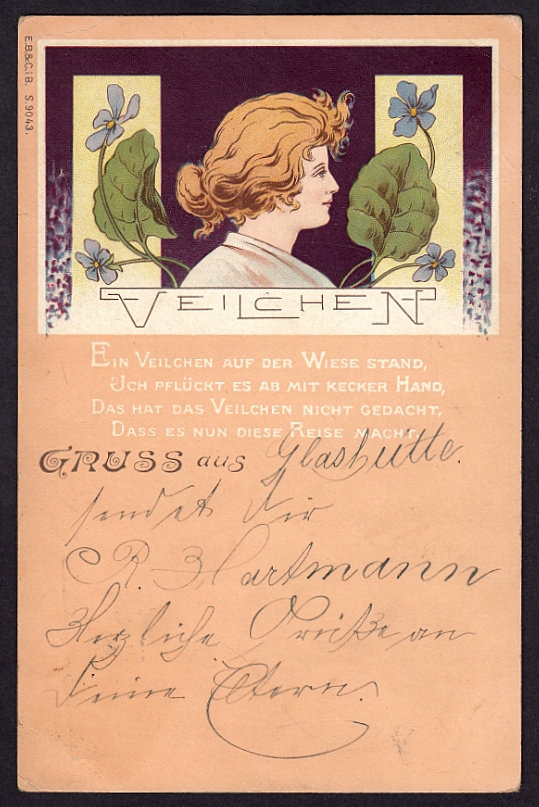 E.B.&C.i B. S 9043.
VEILCHEN
EIN VEILCHEN AUF DER WIESE STAND,
ICH PFLÜCKT ES AB MIT KECKER HAND,
DAS HAT DAS VEILCHEN NICHT GEDACHT,
DASS ES NUN DIESE REISE MACHT.
GRUSS aus Glashütte.
sendet Dir
R. Hartmann
Herzliche Grüße an
Deine Eltern.